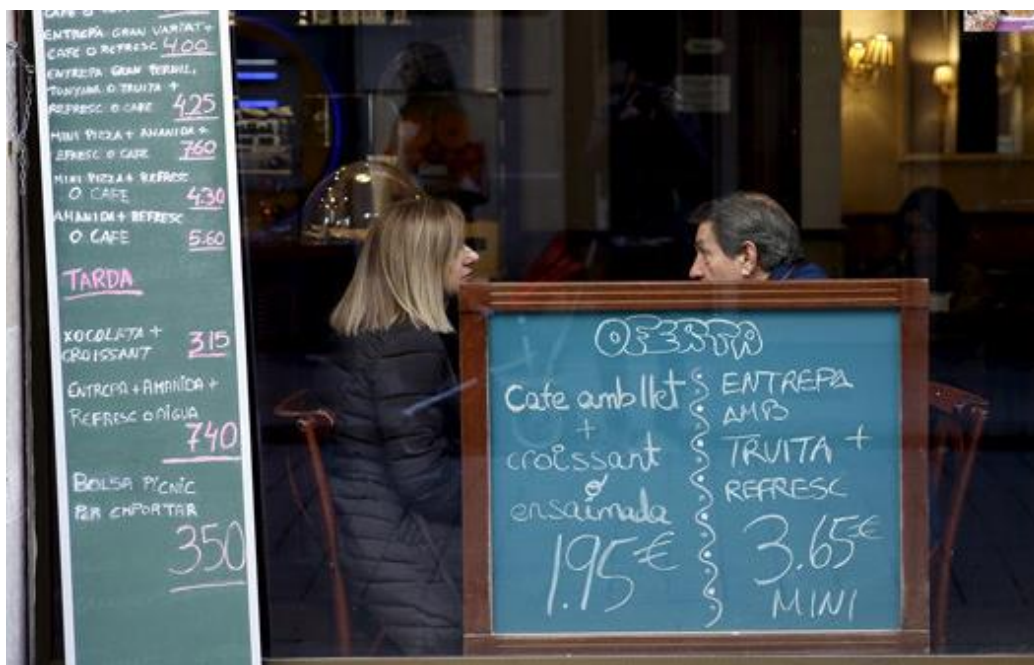 ENTREPA GRAN VARIAT+
CAFE O REFRESC 4.00
ENTREPA GRAN PERNIL,
TONYINA O TRUITA +
REFRESC O CAFE 4.25
MINI PIZZA + AMANIDA +
EFRESC O CAFE 760
MINI PIZZA + REFRESC
O CAFE 4.30
AMANIDA + REFRESC
O CAFE 5.60
TARDA
XOCOLATA +
CROISSANT 315
ENTREPA + AMANIDA +
REFRESC O AIGUA
740
BOLSA PICNIC
PER EMPORTAR
350
OFERTA
Cafe amb llet
+
croissant
o
ensaimada
1.95€
ENTREPA
AMB
TRUITA +
REFRESC
3.65€
MINI